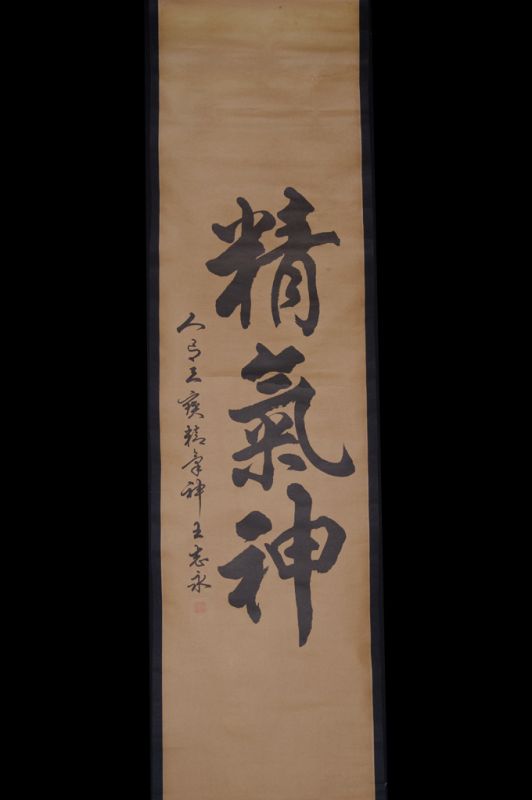 精氣神
人有三寶精氣神 王志永